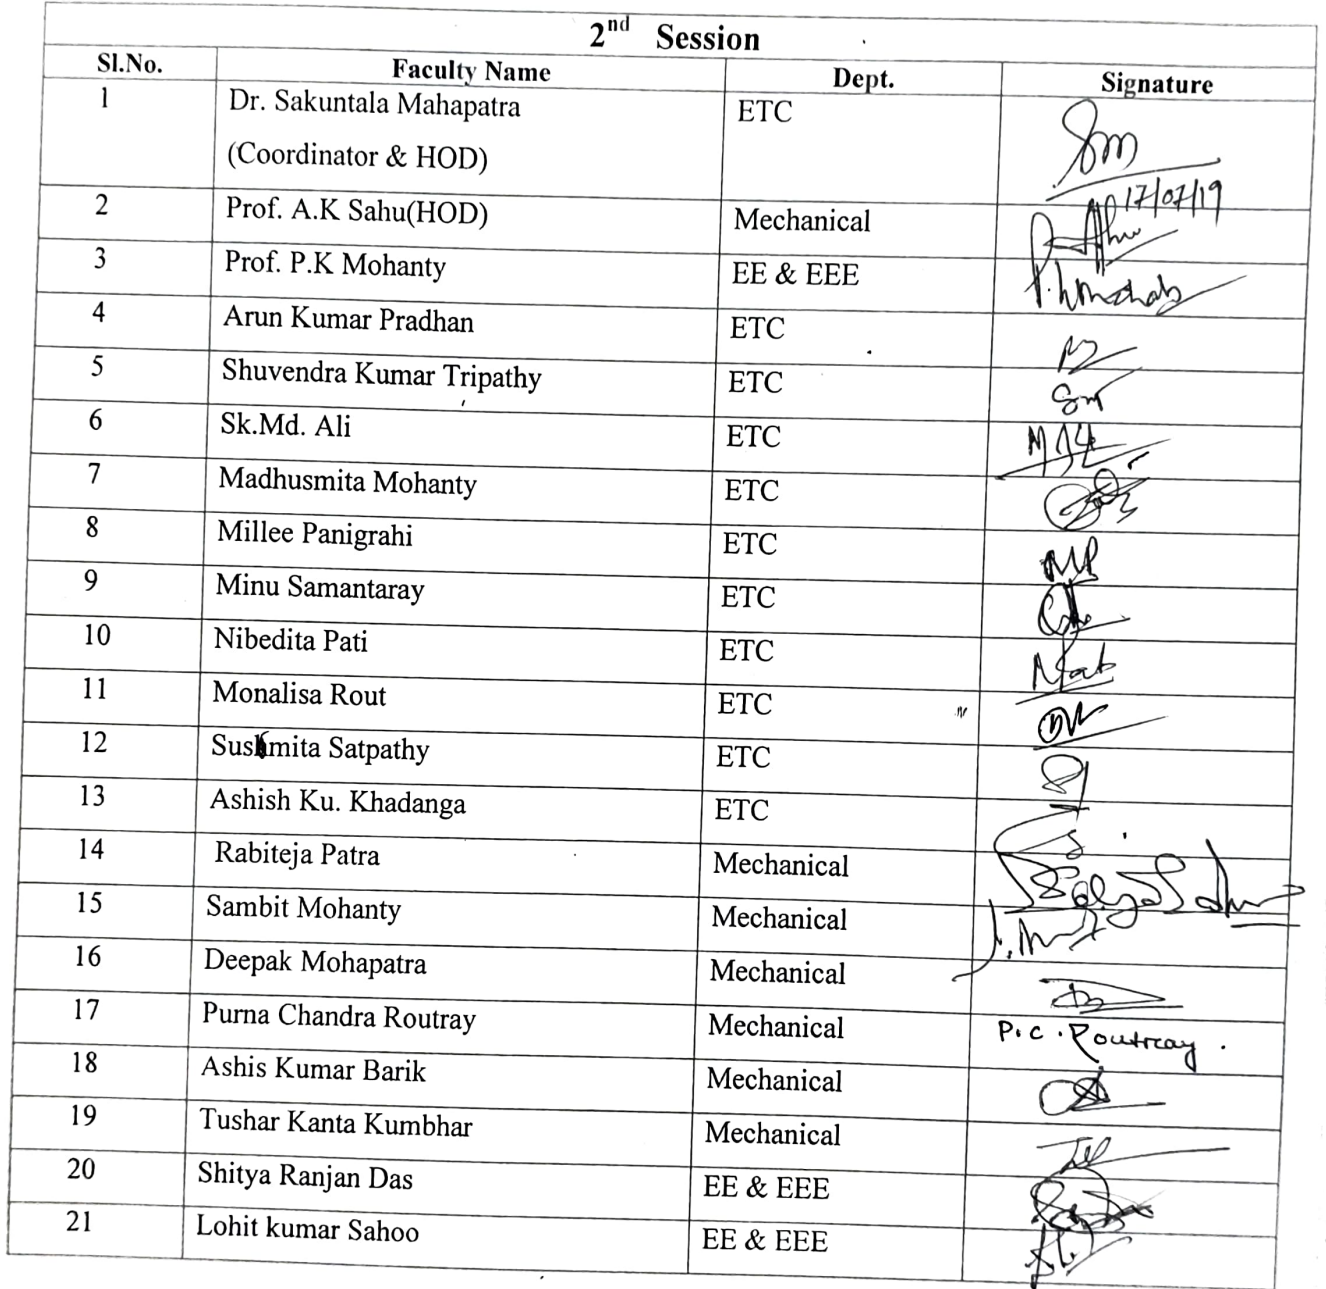 2nd Session
Sl.No. Faculty Name Dept. Signature
1 Dr. Sakuntala Mahapatra ETC Sm
(Coordinator & HOD)
17/07/19
2 Prof. A.K Sahu(HOD) Mechanical
3 Prof. P.K Mohanty EE & EEE
4 Arun Kumar Pradhan ETC
5 Shuvendra Kumar Tripathy ETC
6 Sk.Md. Ali ETC
7 Madhusmita Mohanty ETC
8 Millee Panigrahi ETC MP
9 Minu Samantaray ETC
10 Nibedita Pati ETC
11 Monalisa Rout ETC
12 Sushmita Satpathy ETC
13 Ashish Ku. Khadanga ETC
14 Rabiteja Patra Mechanical
15 Sambit Mohanty Mechanical
16 Deepak Mohapatra Mechanical
17 Purna Chandra Routray Mechanical P.C. Routray.
18 Ashis Kumar Barik Mechanical
19 Tushar Kanta Kumbhar Mechanical
20 Shitya Ranjan Das EE & EEE
21 Lohit kumar Sahoo EE & EEE